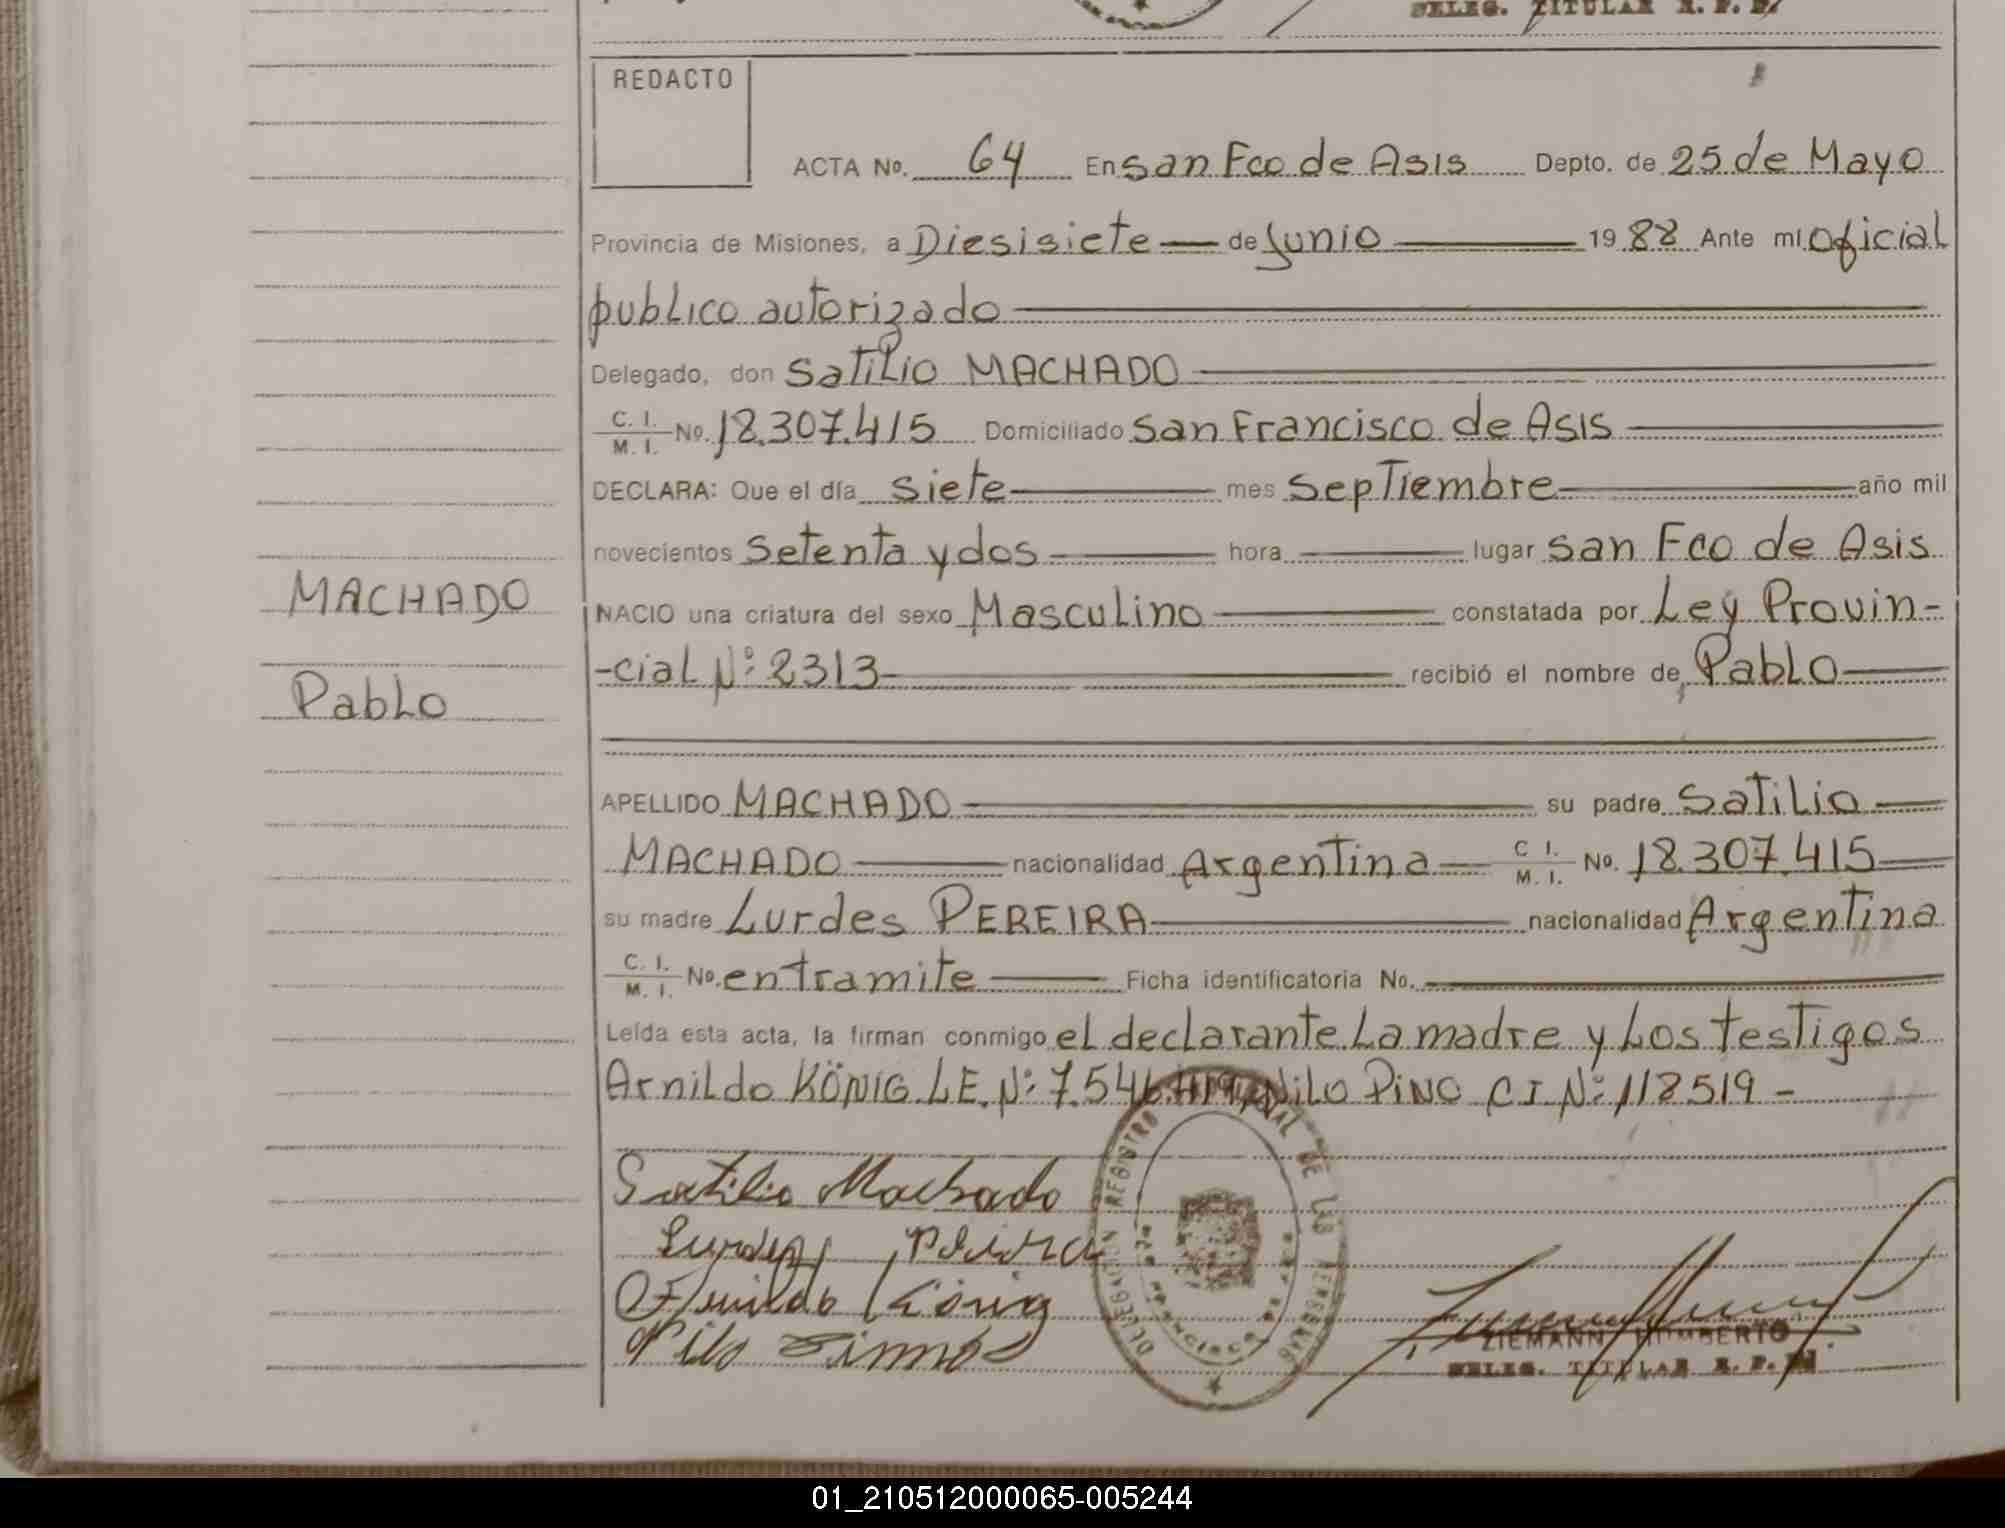 DELEG. TITULAR R. P. P.
REDACTO
ACTA No. 64 En San Fco de Asis Depto. de 25 de Mayo
Provincia de Misiones, a Diesisiete de Junio 1988 Ante mi Oficial
publico autorizado
Delegado, don Satilio MACHADO
C. I. M. I. No. 18.307.415 Domiciliado San Francisco de Asis
DECLARA: Que el día siete mes Septiembre año mil
novecientos Setenta y dos hora lugar San Fco de Asis
MACHADO
NACIO una criatura del sexo Masculino constatada por Ley Provin-
Pablo
-cial Nº 2313 recibió el nombre de, Pablo
APELLIDO MACHADO su padre Satilio
MACHADO nacionalidad Argentina C I. M. I. No. 18.307.415
su madre Lurdes PEREIRA nacionalidad Argentina
C. I. M. I. No. en tramite Ficha identificatoria No.
Leída esta acta, la firman conmigo el declarante La madre y Los testigos
Arnildo KÖNIG L.E. Nº 7.546.419, Nilo PINO C I. Nº 118519 -
Satilio Machado
König
Nilo
DELEGACION REGISTRO DE LAS PERSONAS
ZIEMANN HUMBERTO
DELEG. TITULAR R. P. P.
01_210512000065-005244